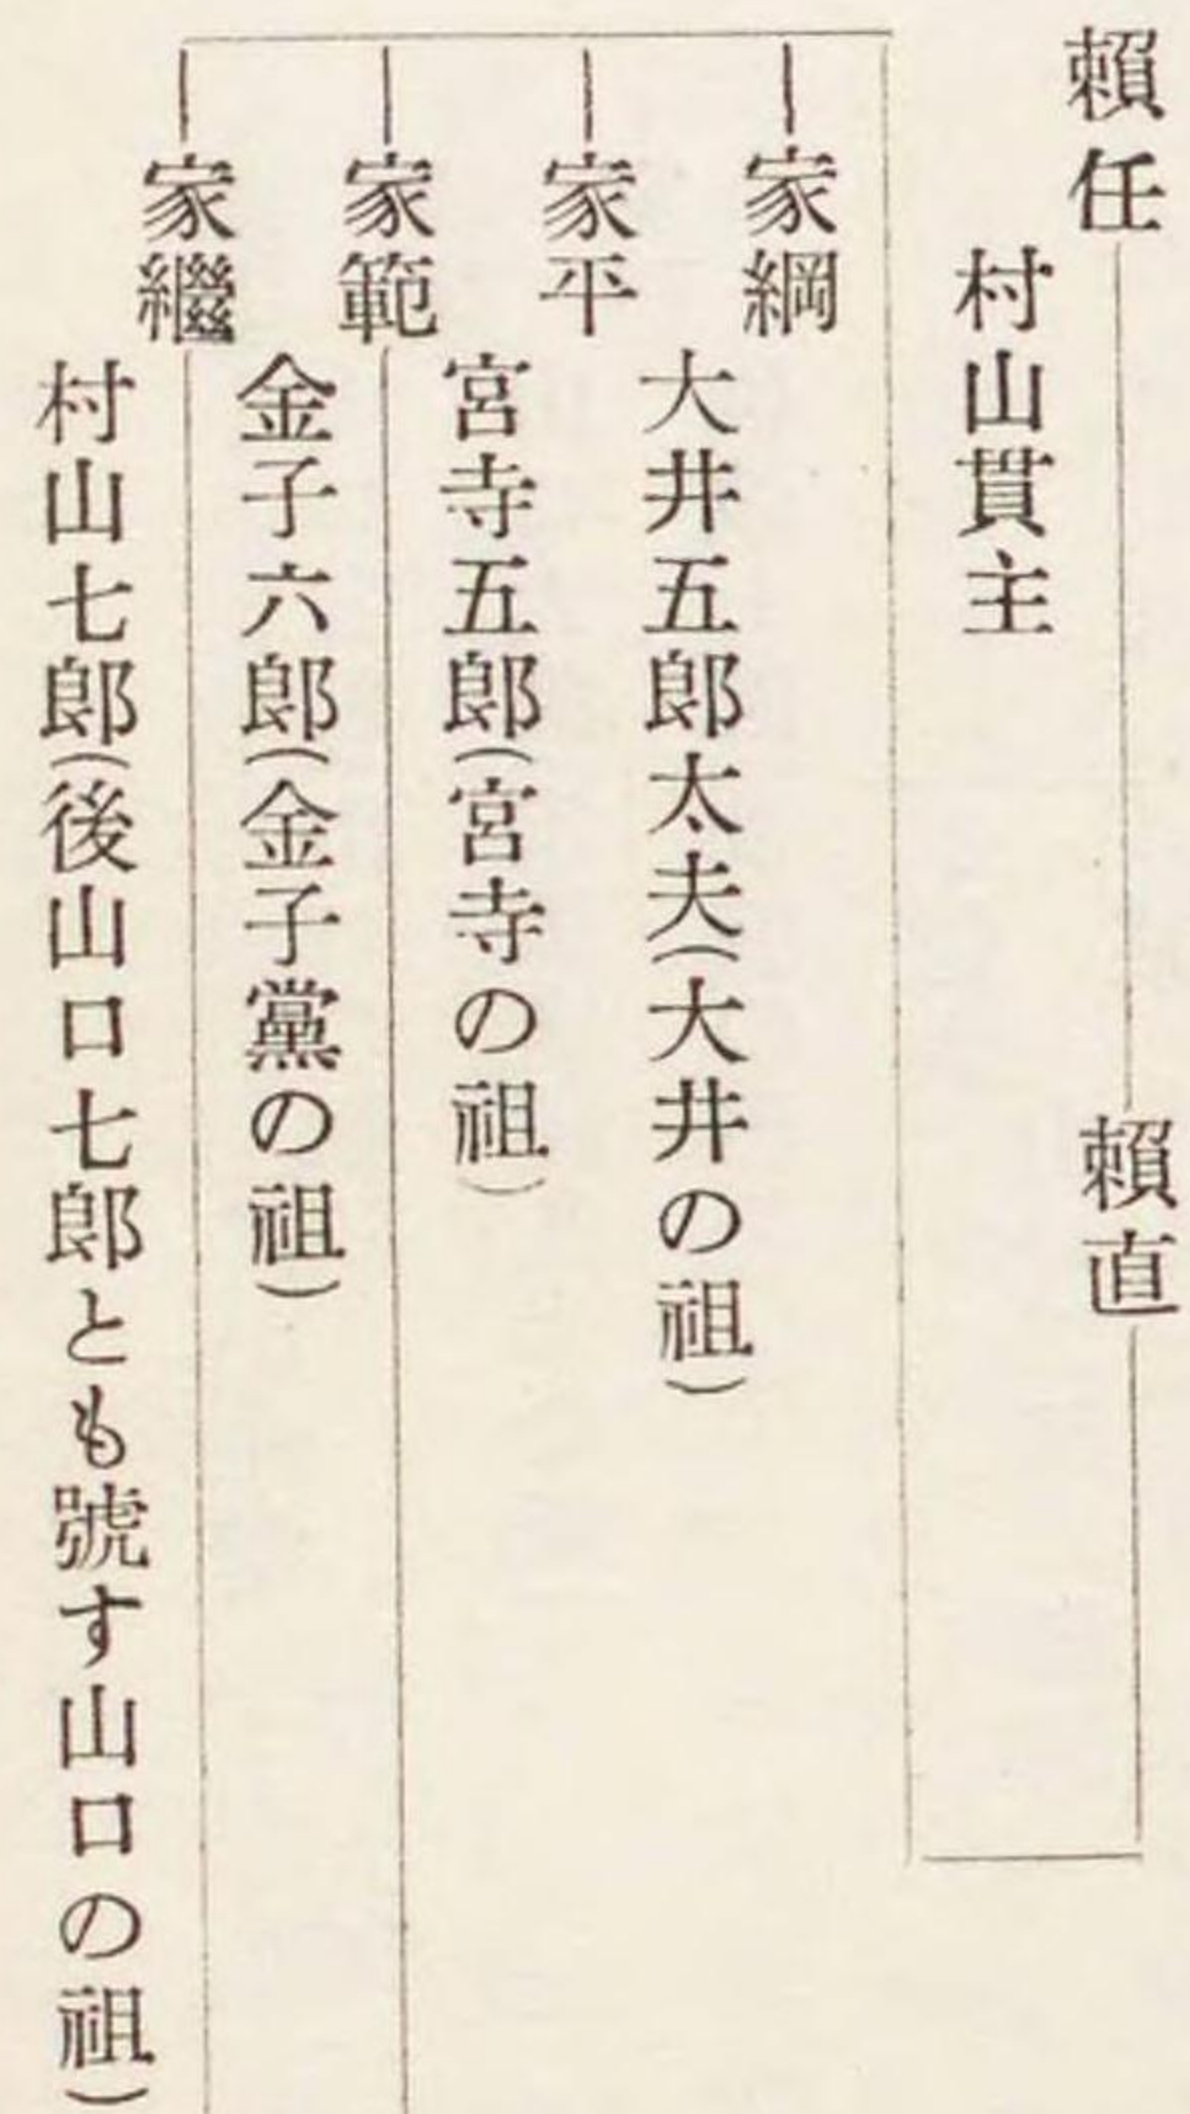 賴任
賴直
村山貫主
家綱
大井五郎太夫(大井の祖)
家平
宮寺五郎(宮寺の祖)
家範
金子六郎(金子黨の祖)
家繼
村山七郎(後山口七郎とも號す山口の祖)